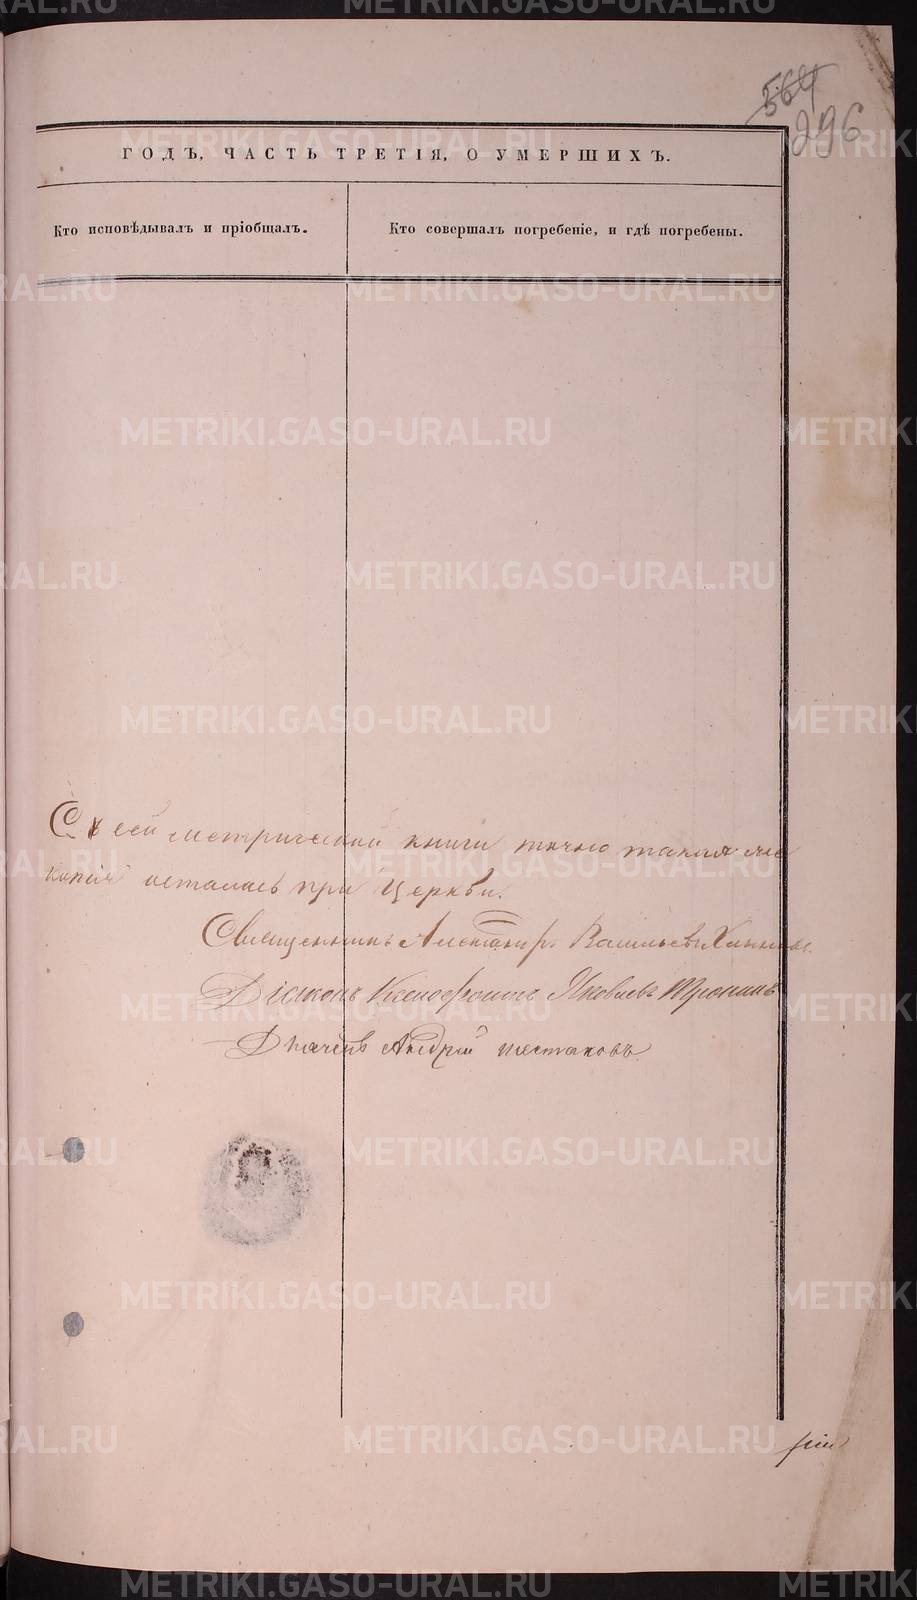 564
296
ГОДЪ, ЧАСТЬ ТРЕТІЯ, О УМЕРШИХЪ.
Кто исповѣдывалъ и пріобщалъ.
Кто совершалъ погребеніе, и гдѣ погребены.
Съ сей метрической книги точно такая же
копія осталась при Церкви.
Священникъ Александръ Васильевъ
Діаконъ Ксенофонтъ Яковлевъ Тронинъ
Дьячекъ Андрей Шестаковъ
METRIKI.GASO-URAL.RU